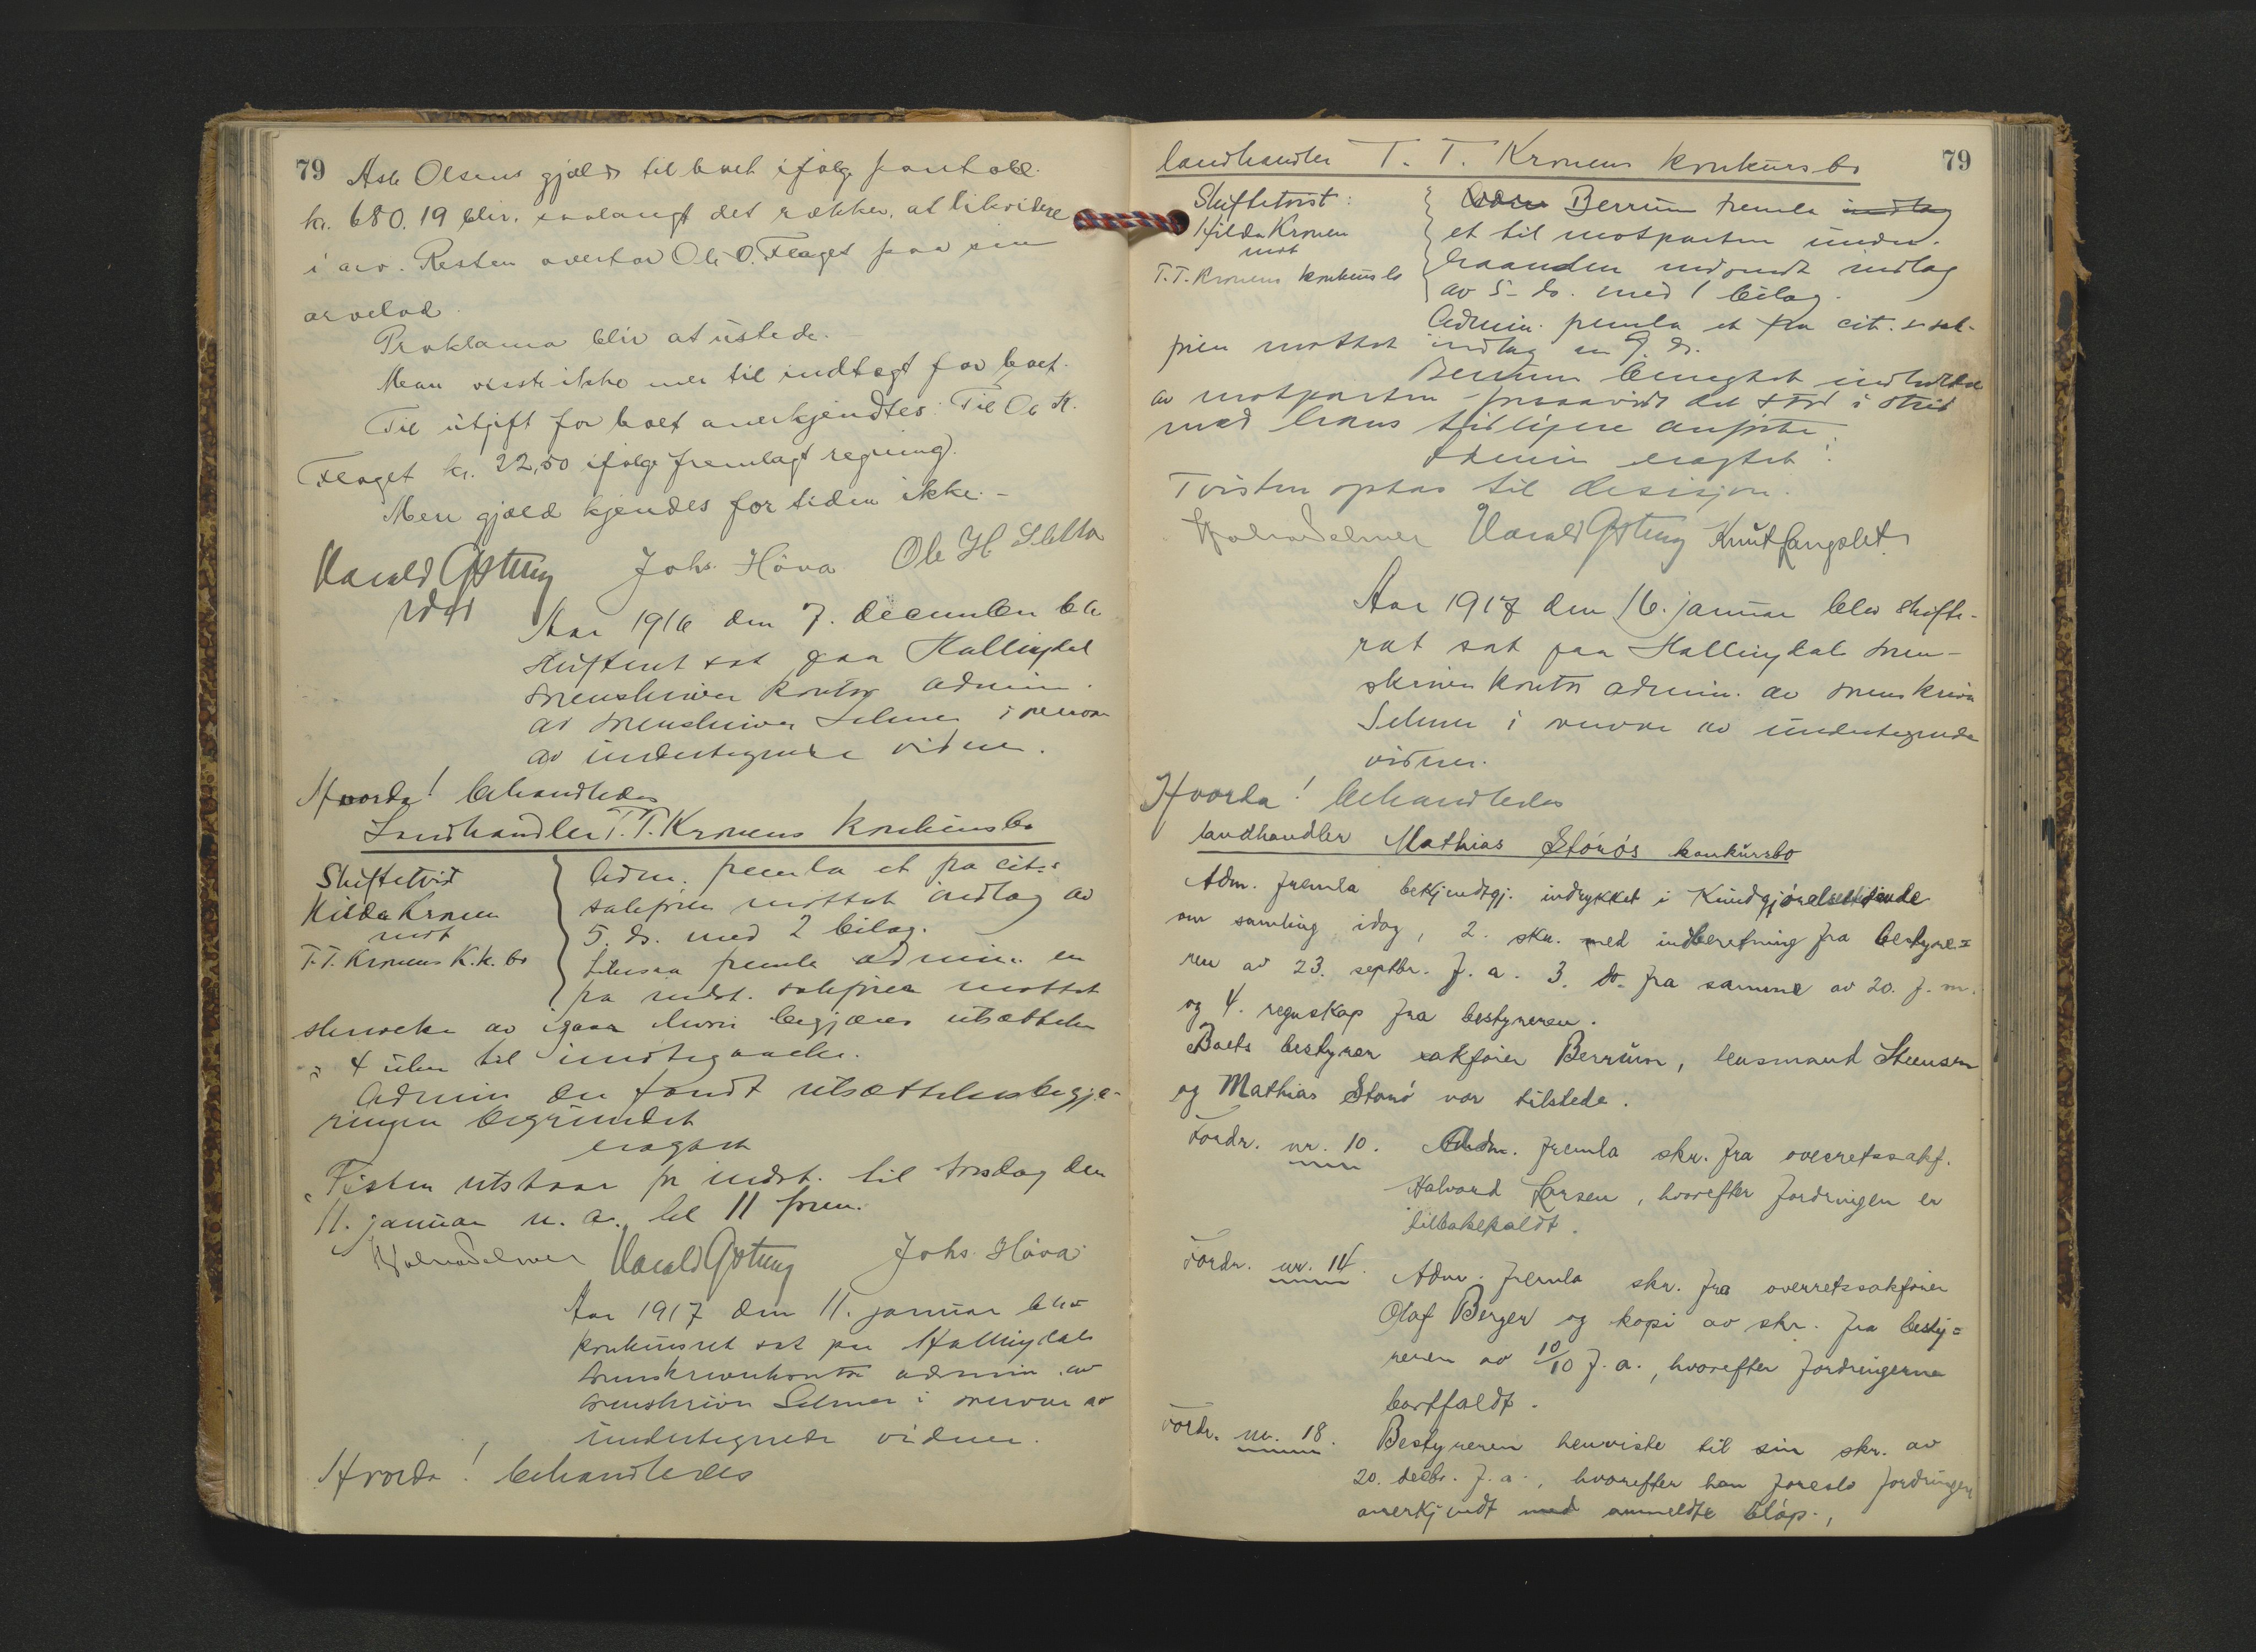 79
Asle Olsens gjæld til boet ifølge pantobl.
kr. 680.19 blir, saalangt det rækker, at likvidere
i arv. Resten overtar Ole O. Flaget paa sin
arvelod.
Proklama blir at utstede.
Man visste ikke mer til indtægt for boet.
Til utgift for boet anerkjendtes: Til Ole H.
Flaget kr. 22,50 ifølge fremlagt regning.
Mere gjæld kjendes for tiden ikke.-
Harald Gstung Johs. Höva Ole H Sletto
Aar 1916 den 7. december blev
skifteret sat paa Hallingdal
sorenskriver kontor admin.
av sorenskriver Selmer i nærvær
av undertegnede vidner.
Hvorda! behandledes
Landhandler T.T. Kronens konkursbo
Skiftetvist
Hilda Kronen
mot
T.T. Kronens K.k. bo
Adm. fremla et fra cit.s
sakfører mottat indlæg av
5. ds. med 2 bilag.
Likesaa fremla admin. en
fra indst. sakfører mottat
skrivelse av igaar hvori begjæres utsættelse
i 4 uker til imøtegaaelse.
Admin den fandt utsættelsesbegjæ-
ringen begrundet
eragtet
Tvisten utstaar fr indst. til torsdag den
11. januar n. a. kl 11 form.
Harald Gstung Johs. Höva
Aar 1917 den 11. januar blev
konkursret sat paa Hallingdals
sorenskriverkontor admin. av
sorenskriver Selmer i nærvær av
undertegnede vidner.
Hvorda! behandledes
landhandler T. T. Kronens konkursbo
79
Skiftetvist:
Hilda Kronen
mot
T.T. Kronens konkursbo
Berrum fremla indlæg
et til motparten under-
haanden indsendt indlæg
av 5- ds. med 1 bilag.
Admin. fremla et fra cit.s sak-
fører mottat indlæg av 9. ds.
Berrum benegtet indholdet
av motpartens - forsaavidt det stod i strid
med hans tidligere anførte.
Admin eragtet:
Tvisten optas til desisjon.
Harald Gstung Knut Langslet
Aar 1917 den 16. januar blev skifte-
ret sat paa Hallingdals soren-
skriver kontor admin. av sorenskriver
Selmer i nærvær av undertegnede
vidner.
Hvorda! behandledes
landhandler Mathias Storös konkursbo
Adm. fremla bekjendtgj. indrykket i Kundgjørelsestidende
om samling idag, 2. skr. med indberetning fra bestyre=
ren av 23. septbr. f. a. 3. do. fra samme av 20. f. m.
og 4. regnskap fra bestyreren.
Boets bestyrer sakfører Berrum, lensmand Steensen
og Mathias Storö var tilstede.
Fordr. nr. 10. Adm. fremla skr. fra overretssakf.
Halvard Larsen, hvorefter fordringen er
tilbakekaldt.
Fordr. nr. 14. Adm. fremla skr. fra overretssakfører
Olaf Berger og kopi av skr. fra besty=
reren av 10/10 f. a., hvorefter fordringerne
bortfaldt.
Fordr. nr. 18. Bestyreren henviste til sin skr. av
20. decbr. f. a., hvorefter han foreslo fordringen
anerkjendt med anmeldte beløp.,